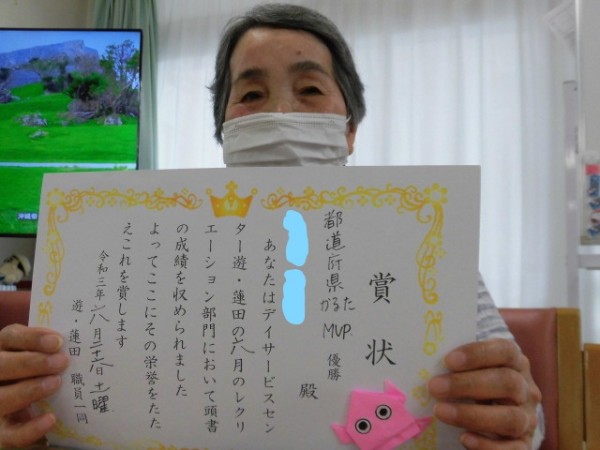 賞状
都道府県かるた MVP 優勝
殿
あなたはデイサービスセン
ター遊・蓮田の六月のレクリ
エーション部門において頭書
の成績を収められました
よってここにその栄誉をたた
えこれを賞します
令和三年六月二十六日土曜
遊・蓮田 職員一同